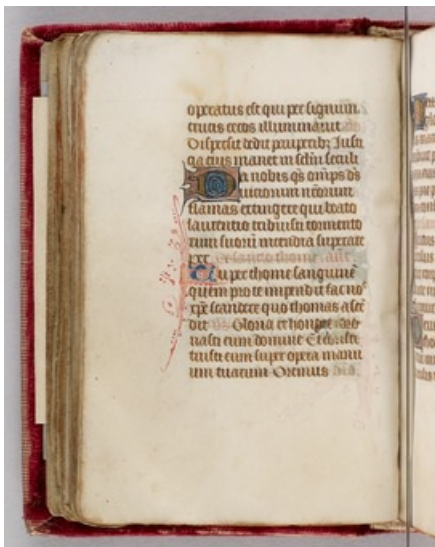 operatus est qui per signum
crucis cecos illuminauit
Dispersit dedit pauperibz Justi
cia eius manet in sclm seculi
Da nobis qs omps ds
uiciorum nrorum
flamas extingere qui beato
laurentio tribuisti tormento
rum suoru incendia superare
per De sancto thoma ant
Tu per thome sanguine
quem pro te impendit fac nos
xpe scandere quo thomas ascē
dit Gloria et honore coro
nasti eum domine Et consti
tuisti eum super opera manu
um tuarum Oremus